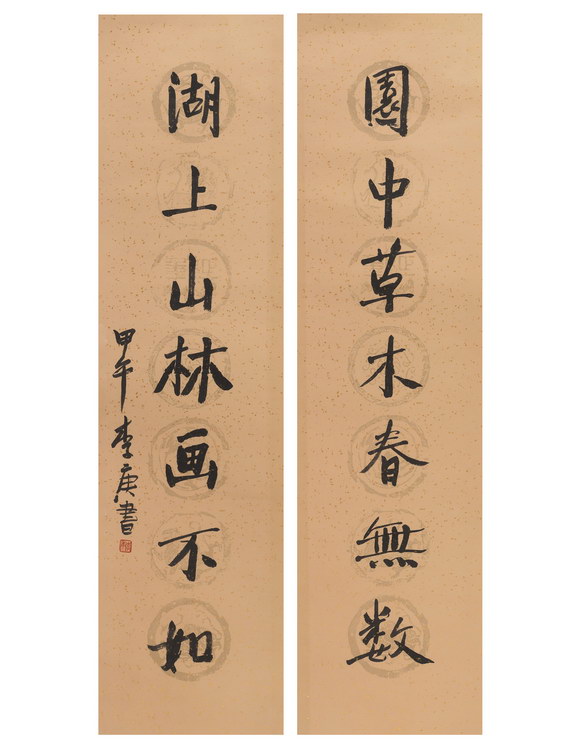 園中草木春無数
湖上山林画不如
甲午李庚書